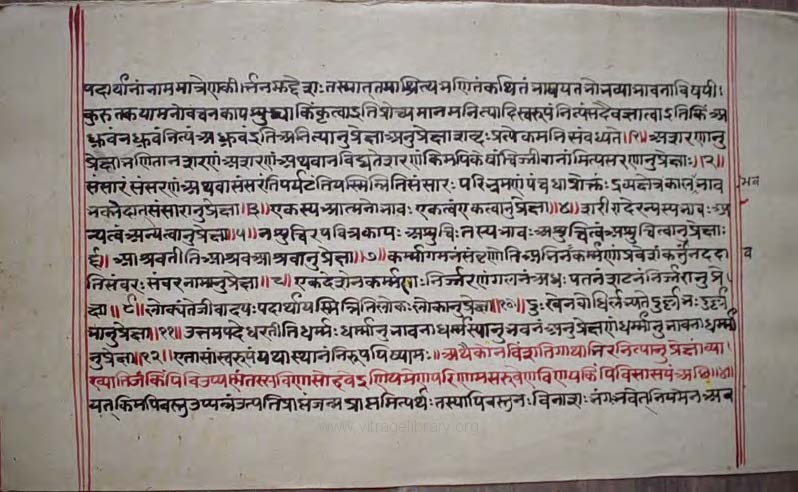 पदार्थानां नाममात्रेण कीर्त्तनमुद्देशः तस्मात् तमाश्रित्य भणितं कथितं भावयत भो भव्या भावनाविषयी
कुरुत कया मनोवचनकाय किं कृत्वा इति प्रोच्यमानमनित्यादिस्वरूपं नित्यं सदैव ज्ञात्वा इति किं अ
ध्रुवं न ध्रुवं नित्यं अध्रुवं इति अनित्यानुप्रेक्षा अनुप्रेक्षाशब्दः प्रत्येकमभिसंबध्यते ॥१॥ अशरणानु
प्रेक्षा न शरणं अशरणं अथवा न विद्यते शरणं किमपि केषां जीवानां अशरणानुप्रेक्षा ॥२॥
संसारं संसरणं अथवा संसरंति पर्यटंति यस्मिन्निति संसारः परिभ्रमणं पंचधा प्रोक्तं द्रव्यक्षेत्रकालभाव भव
भेदात् संसारानुप्रेक्षा ॥३॥ एकस्य आत्मनो भावः एकत्वं एकत्वानुप्रेक्षा ॥४॥ शरीरादेरन्यस्य भावः अ
न्यत्वं अन्यत्वानुप्रेक्षा ॥५॥ न शुचिरपवित्रकायः अशुचिः तस्य भावः अशुचित्वं अशुचित्वानुप्रेक्षा
६॥ आश्रवतीति आश्रव आश्रवानुप्रेक्षा ॥७॥ कर्म्मागमनं संवृणोति अभिनवकर्म्मणां प्रवेशं कर्त्तुं न ददा व
तिसंवरः संवरनामानुप्रेक्षा ॥८॥ एकदेशेन कर्म्मणः निर्ज्जरणं गलनं अधःपतनं शटनं निर्जरानुप्रे
क्षा ॥९॥ लोक्यंते जीवादयः पदार्था यस्मिन्निति लोकः लोकानुप्रेक्षा ॥१०॥ दुःखेन बोधिर्लभ्यते दुर्ल्लभः दुर्ल्ल
भानुप्रेक्षा ॥११॥ उत्तमपदे धरतीति धर्म्मः धर्म्मानुभावना धर्म्मस्यानुभवनं अनुप्रेक्षणं धर्म्मानुभावना धर्म्मा
नुप्रेक्षा ॥१२॥ एतासां स्वरूपं यथास्थानं निरूपयिष्यामः॥ अथैकोनविंशतिगाथाभिरनित्यानुप्रेक्षां व्या
ख्याति जं किंपि वि उप्पण्णं तस्स विणासो हवेइ णियमेण परिणामसरूवेण वि ण य किंपि वि सासयं अत्थि ॥४॥
यत् किमपि वस्तु उत्पन्नं उत्पत्तिप्राप्तं जन्मप्राप्तमित्यर्थः तस्यापि वस्तुनः विनाशः भंगः भवेत् नियमेन अव
www.vitragelibrary.org